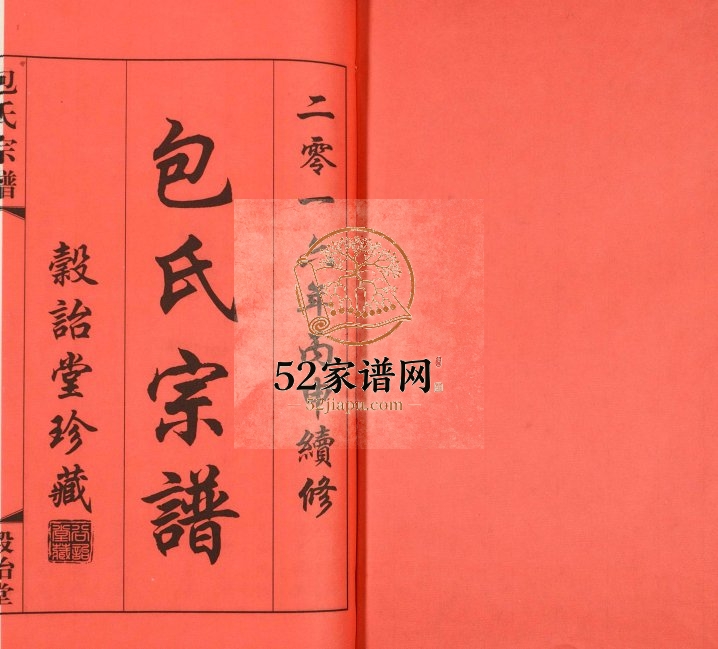 二零一六年丙申續修
包氏宗譜
穀詒堂珍藏
包氏宗譜
穀詒堂
52家谱网
52jiapu.com